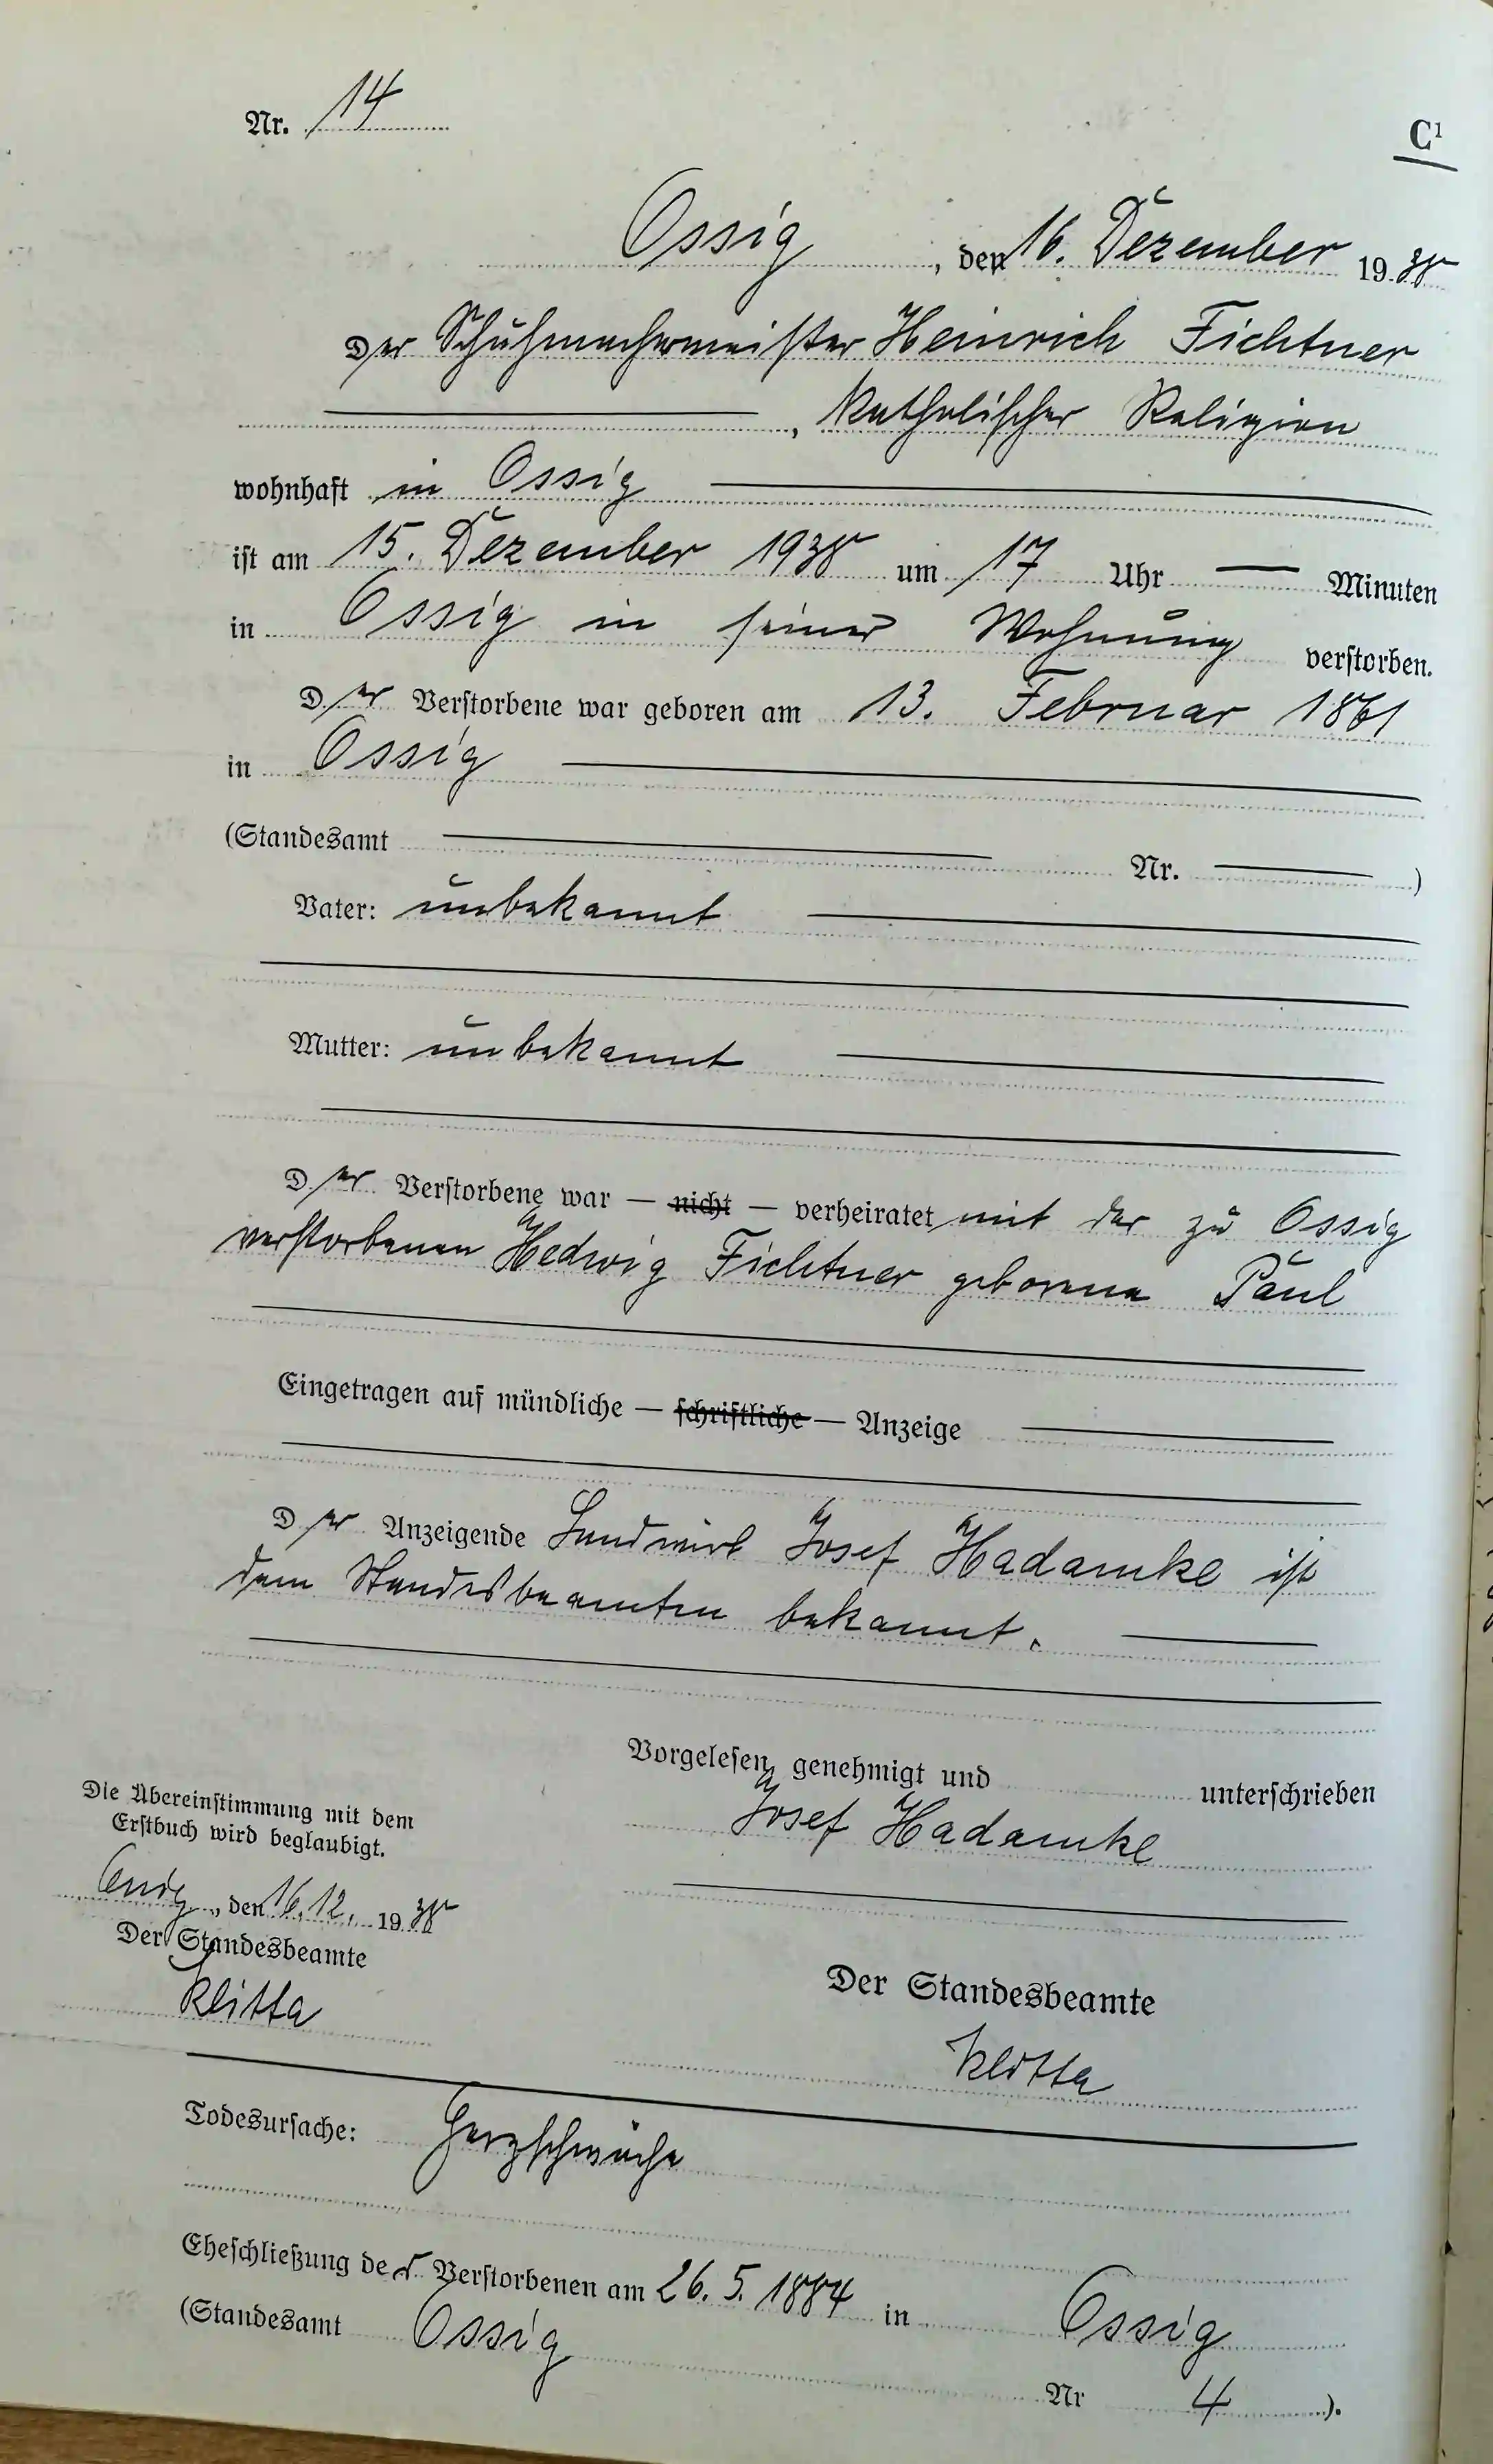 Nr. 14
C¹
Ossig, den 16. Dezember 1938
Der Schuhmachermeister Heinrich Fichtner
, katholischer Religion
wohnhaft in Ossig
ist am 15. Dezember 1938 um 17 Uhr — Minuten
in Ossig in seiner Wohnung verstorben.
Der Verstorbene war geboren am 13. Februar 1861
in Ossig
(Standesamt — Nr. — )
Vater: unbekannt
Mutter: unbekannt
Der Verstorbene war — nicht — verheiratet mit der zu Ossig
verstorbenen Hedwig Fichtner geborene Paul
Eingetragen auf mündliche — schriftliche — Anzeige
Der Anzeigende Landwirt Josef Hadamke ist
dem Standesbeamten bekannt.
Vorgelesen, genehmigt und unterschrieben
Josef Hadamke
Die Übereinstimmung mit dem
Erstbuch wird beglaubigt.
Ossig, den 16.12. 1938
Der Standesbeamte
Klitta
Der Standesbeamte
Klitta
Todesursache: Herzschwäche
Eheschließung des Verstorbenen am 26. 5. 1884 in Ossig
(Standesamt Ossig Nr 4 ).